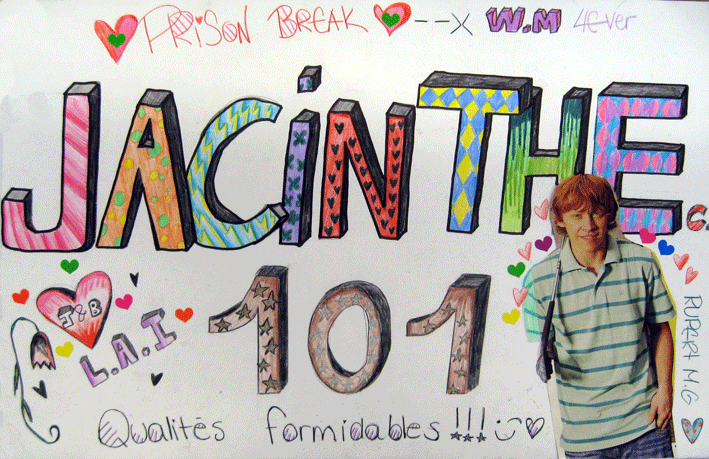 PRISON BREAK --x W.M 4Ever
JACINTHE C.
J&B
L.A.I
101
RUPERT M.G
Qualités formidables!!!